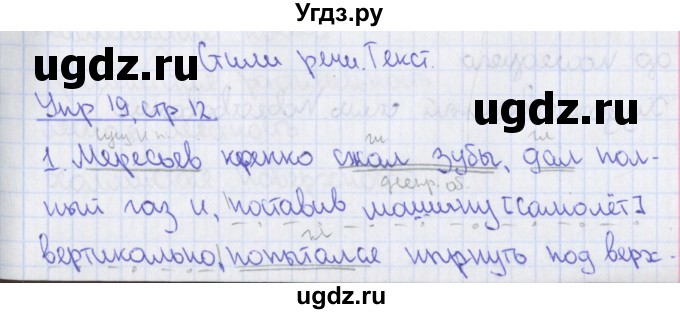 Угдз.ру
Стили речи. Текст.
ugdz.ru ugdz.ru
Упр 19, стр 12.
сущ. и.п. гл гл
1. Мересьев крепко сжал зубы, дал пол-
деепр. об.
ный газ и, |поставив машину [самолёт]
гл
вертикально,| попытался нырнуть под верх-
ugdz.ru ugdz.ru
ugdz.ru